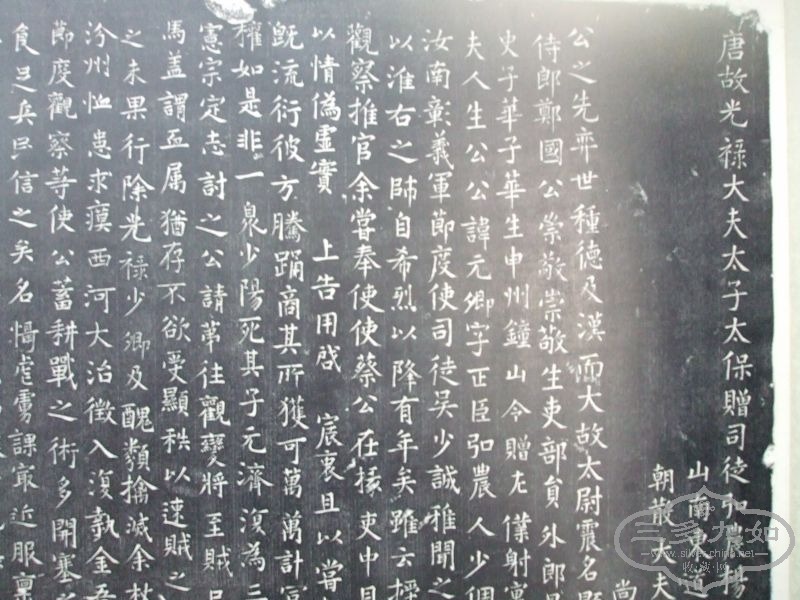 唐故光祿大夫太子太保贈司徒弘農楊
山南東道
朝散大夫
尚
公之先弈世種德及漢而大故太尉震名顯
侍郎鄭國公崇敬崇敬生吏部員外郎
史子華子華生申州鐘山令贈左僕射
夫人生公公諱元卿字正臣弘農人少倜
汝南彰義軍節度使司徒吳少誠雅聞之
以淮右之師自希烈以降有年矣雖云採
觀察推官余嘗奉使使蔡公在掾吏中
以情偽虛實 上告用啓 宸衷且以嘗
既流衍彼方騰踊商其所獲可萬萬計
榷如是非一泉少陽死其子元濟復為三
憲宗定志討之公請苐往觀變將至賊
馬蓋謂孟属猶存不欲受顯秩以速賊之
之未果行除光祿少卿及醜類擒滅余
汾州恤患求瘼西河大治徵入復執金吾
節度觀察等使公蓄耕戰之術多開塞
食足兵民信之矣名愶虐虜課冣近服稟
三多九如
www.silverchn.net
收藏网